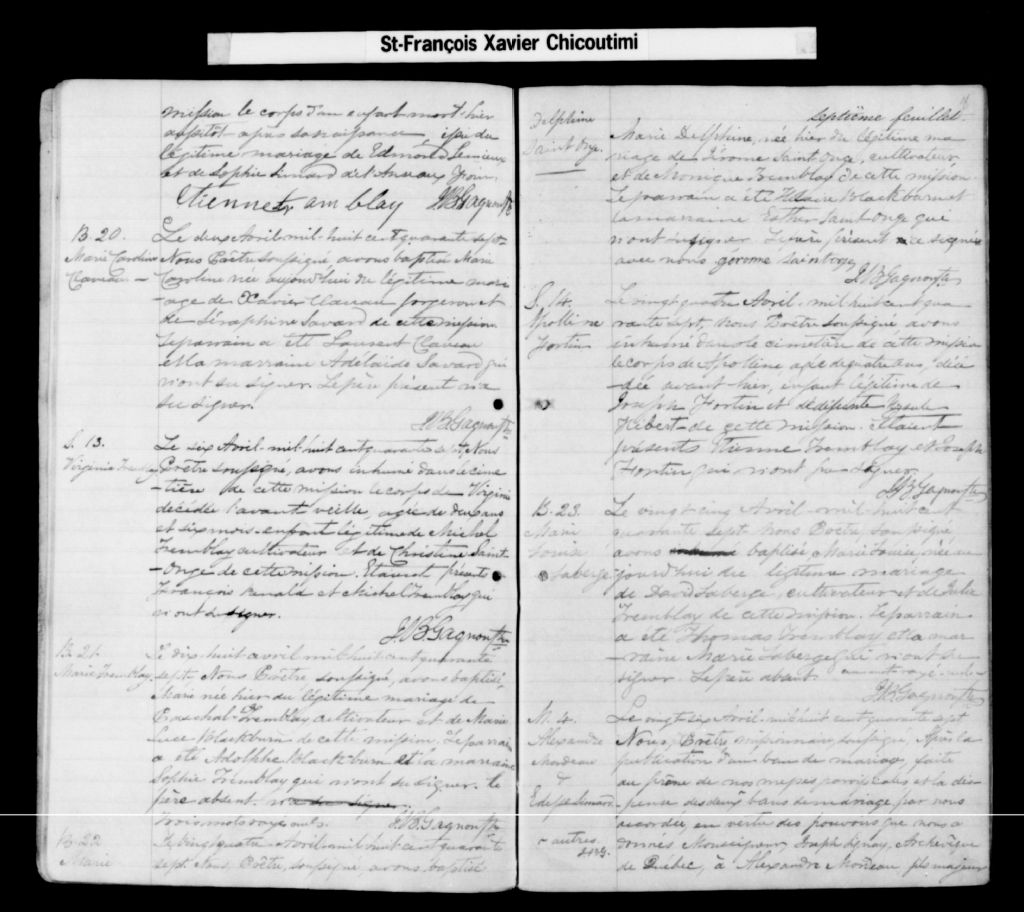 St-François Xavier Chicoutimi
mission le corps d'un enfant mort hier
aussitôt après sa naissance, issu du
légitime mariage de Edmond Lemieux
et de Sophie Simard de l'Anse au Foin
Etienne tr am blay JBGagnon Ptre
B. 20.
Marie Caroline
Claveau —
Le deux Avril mil-huit cent quarante sept
Nous Prêtre soussigné avons baptisé Marie
Caroline née aujourd'hui du légitime mari
-age de Xavier Claveau forgeron et
de Séraphine Savard de cette mission
Le parrain a été Laurent Claveau
et la marraine Adélaïde Savard qui
n'ont su signer. Le père présent n'a
su signer.
JBGagnon Ptre
S. 13.
Virginie Tremblay
Le six Avril mil huit cent quarante sept Nous
Prêtre soussigné, avons inhumé dans le cime
-tière de cette mission le corps de Virginie
décédée l'avant veille, agée de deux ans
et six mois enfant légitime de Michel
Tremblay cultivateur et de Christine Saint-
-Onge de cette mission. Etaient présents
François Renald et Michel Tremblay qui
n'ont su signer.
JBGagnon Ptre
B. 21.
Marie Tremblay
Le dix-huit avril mil huit cent quarante
sept Nous Prêtre soussigné, avons baptisé
Marie née hier du légitime mariage de
Paschal Tremblay cultivateur et de Marie
Luce Blackburn de cette mission. Le parrain
a été Adolphe Blackburn et la marraine
Sophie Tremblay qui n'ont su signer. Le
père absent. n'a su signer
Trois mots rayés nuls. JBGagnon Ptre
B. 22
Marie
Le vingt quatre Avril mil huit cent quarante
sept Nous Prêtre, soussigné avons, baptisé
septième feuillet.
Delphine
Saint Onge.
Marie Delphine, née hier du légitime ma
riage de Jérome Saint Onge, cultivateur
et de Monique Tremblay de cette mission
Le parrain a été Hilaire Blackburn et
la marraine Esther Saint Onge qui
n'ont su signer. Le père présent a signé
avec nous. gerome saintonge
JBGagnon Ptre
S. 14.
Apolline
Fortin
Le vingt quatre Avril, mil huit cent qua
rante sept, Nous Prêtre soussigné avons
inhumé dans le cimetière de cette mission
le corps de Apolline agée de quatre ans, décé
-dée avant hier, enfant légitime de
Joseph Fortin et de défunte Ursule
Hébert de cette mission. Etaient
présents Etienne Tremblay et Joseph
Fortin qui n'ont su signer
JBGagnon Ptre
B. 23.
Marie
Louise
Laberge
Le vingt cinq Avril mil huit cent
quarante sept Nous Prêtre soussigné
avons baptisé Marie Louise, née au
jourd'hui du légitime mariage
de David Laberge, cultivateur et de Julie
Tremblay de cette mission. Le parrain
a été Thomas Tremblay et la mar
-raine Marie Laberge qui n'ont su
signer. Le père absent. un mot rayé nul
JBGagnon Ptre
M. 4.
Alexandre
Morneau
&
Edesse Simard
Le vingt-six Avril mil huit cent quarante sept
Nous, Prêtre missionnaire, soussigné, Après la
publication d'un ban de mariage, faite
au prône de nos messes paroissiales et la dis
pense des deux bans de mariage par nous
accordée en vertu des pouvoirs que nous a
donnés Monseigneur Joseph Signay, Archevêque
de Québec, à Alexandre Morneau, fils majeur
& autres